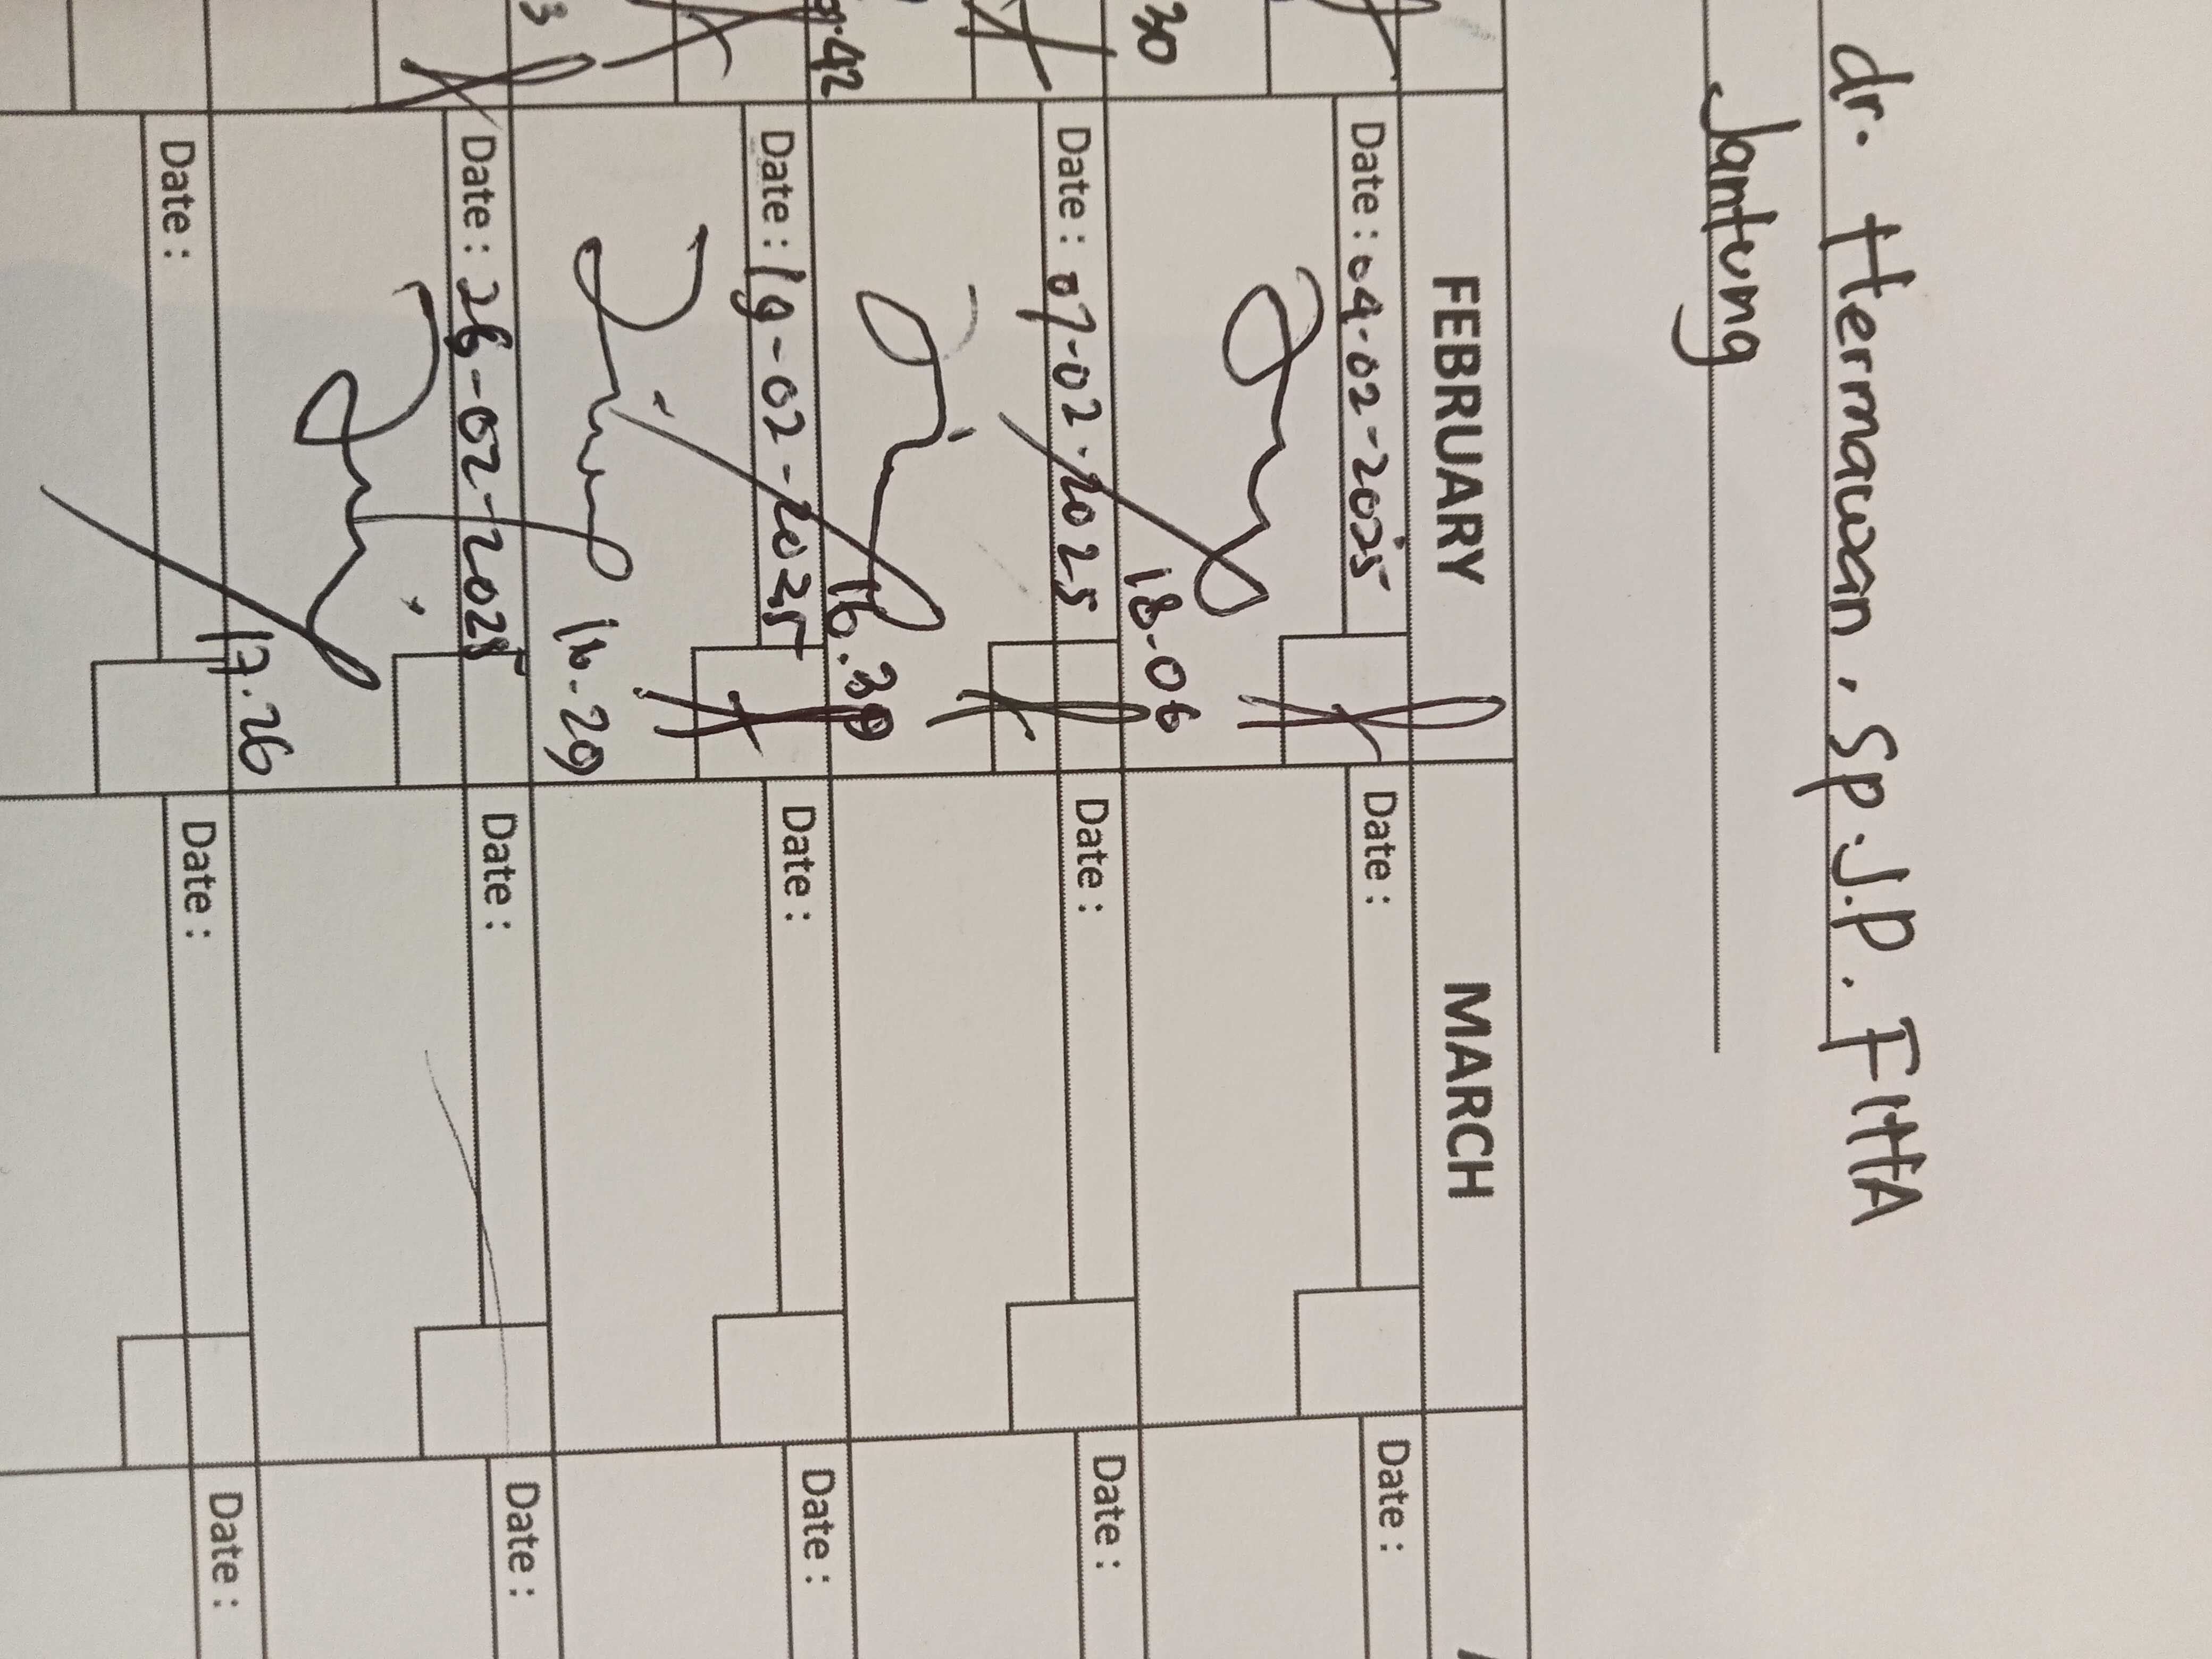 dr. Hermawan, Sp.J.P. FIHA
Jantung
FEBRUARY MARCH
Date : 04-02-2025 Date : Date :
30 18-06
Date : 07-02-2025 Date : Date :
.42 16.30
Date : 19-02-2025 Date : Date :
3 16-29
Date : 26-02-2025 Date : Date :
17.26
Date : Date : Date :